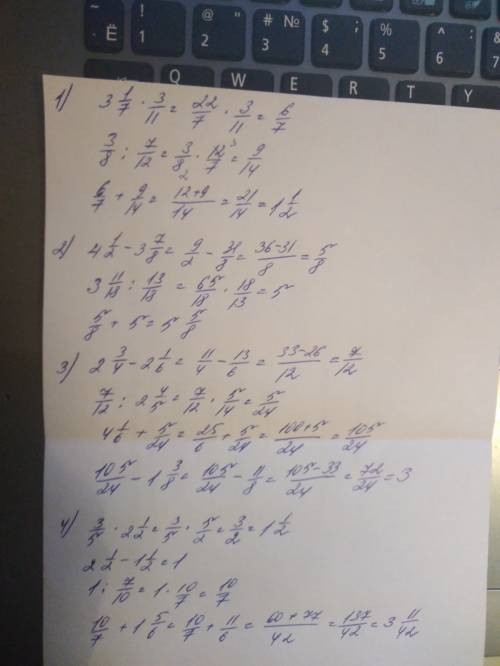 @ " # № $ ; % : ^ 
Ё ! 1 2 3 4 5 6
Q W E R T Y
1) 3 1/7 · 3/11 = 22/7 · 3/11 = 6/7
3/8 : 7/12 = 3/8 · 12/7 = 9/14
2 3
6/7 + 9/14 = (12+9)/14 = 21/14 = 1 1/2
2) 4 1/2 - 3 7/8 = 9/2 - 31/8 = (36-31)/8 = 5/8
3 11/18 : 13/18 = 65/18 · 18/13 = 5
5/8 + 5 = 5 5/8
3) 2 3/4 - 2 1/6 = 11/4 - 13/6 = (33-26)/12 = 7/12
7/12 : 2 4/5 = 7/12 · 5/14 = 5/24
4 1/6 + 5/24 = 25/6 + 5/24 = (100+5)/24 = 105/24
105/24 - 1 3/8 = 105/24 - 11/8 = (105-33)/24 = 72/24 = 3
4) 3/5 · 2 1/2 = 3/5 · 5/2 = 3/2 = 1 1/2
2 1/2 - 1 1/2 = 1
1 : 7/10 = 1 · 10/7 = 10/7
10/7 + 1 5/6 = 10/7 + 11/6 = (60+77)/42 = 137/42 = 3 11/42